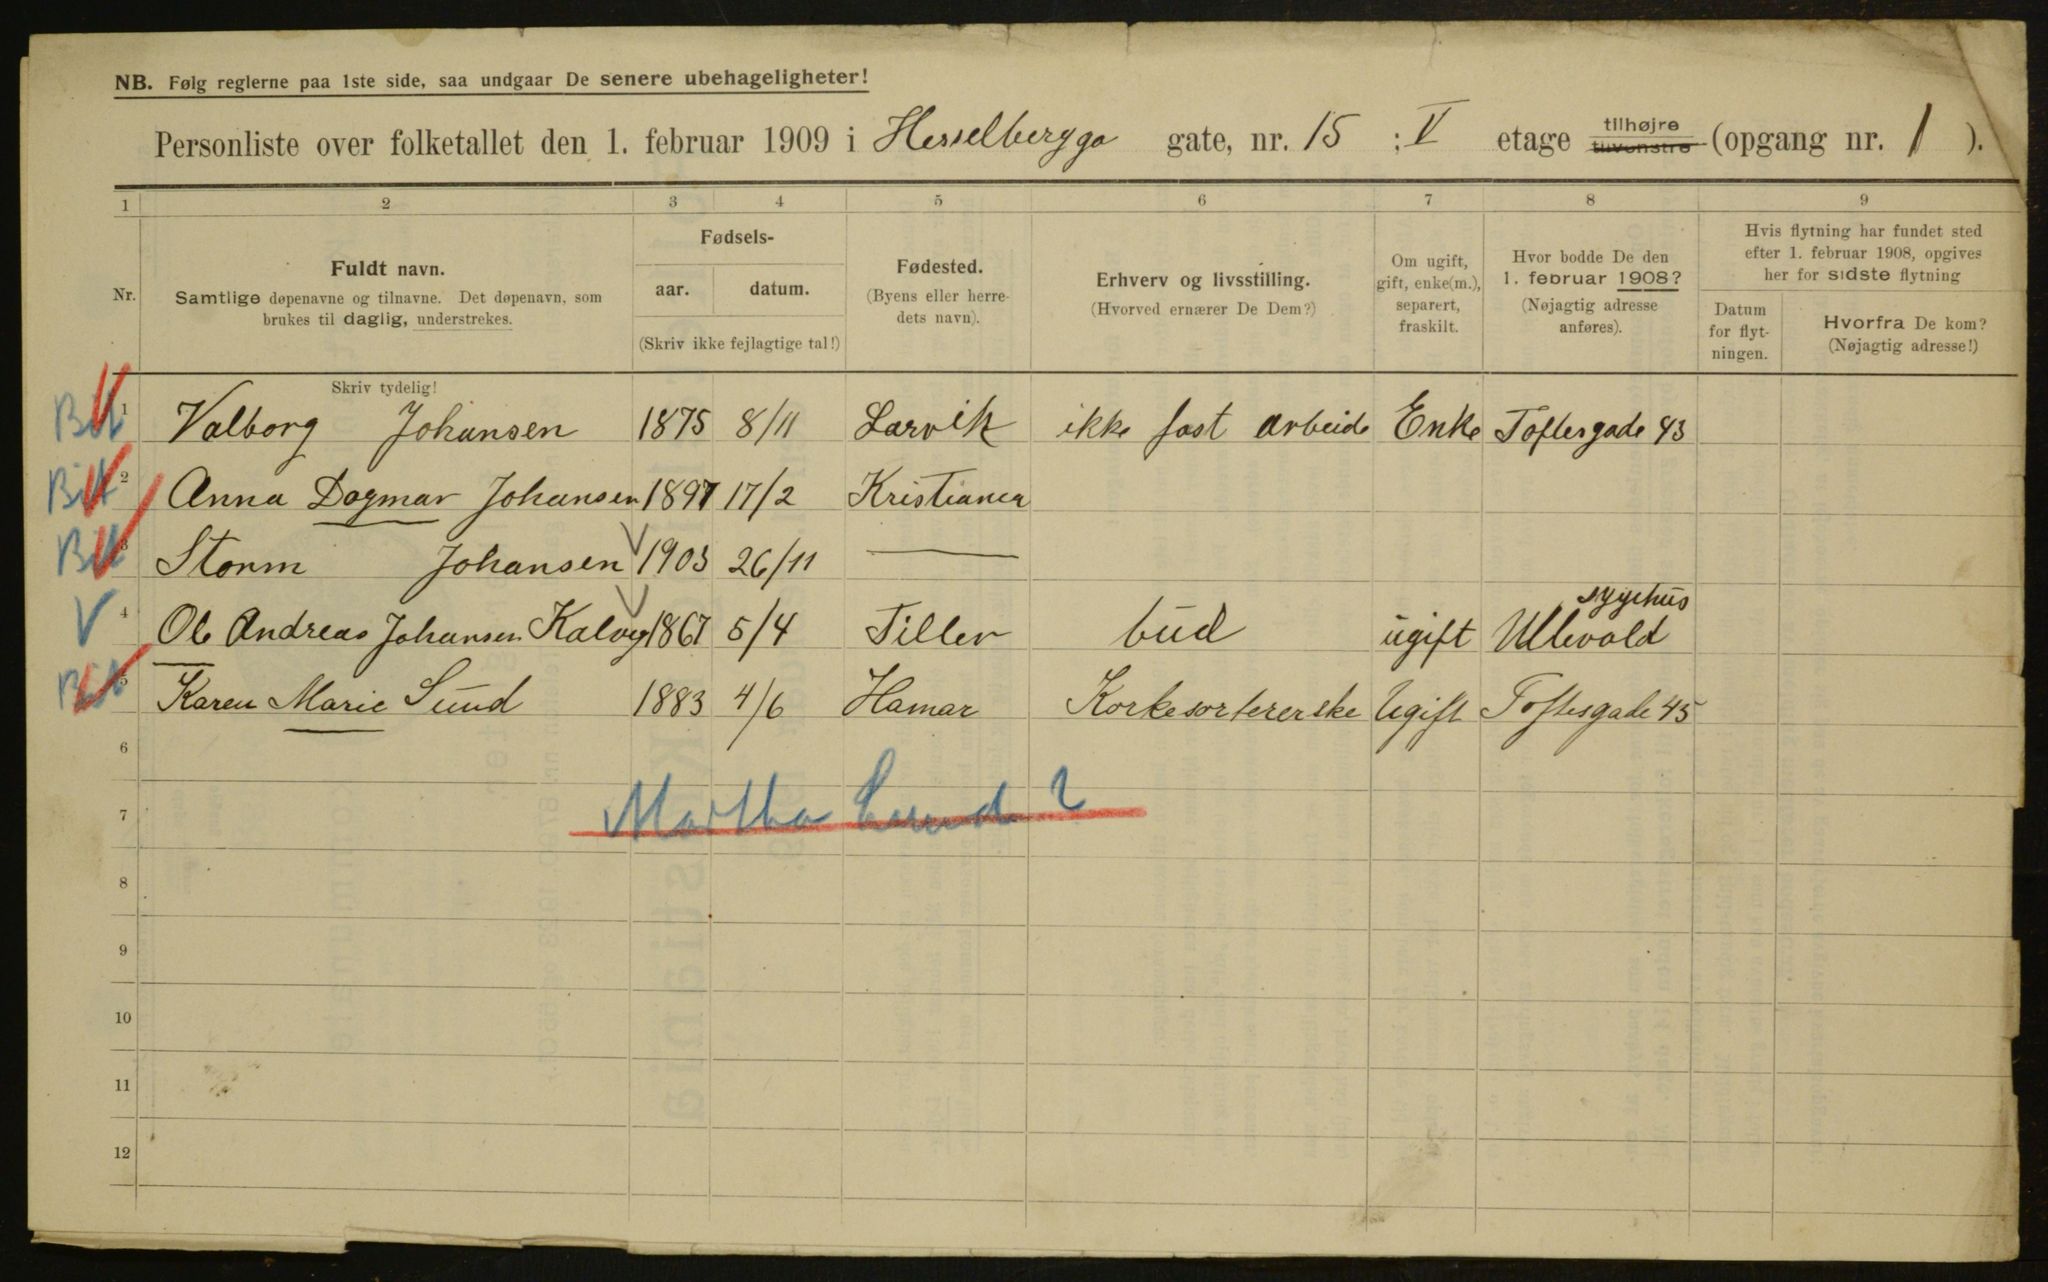 NB. Følg reglerne paa 1ste side, saa undgaar De senere ubehageligheter!
Personliste over folketallet den 1. februar 1909 i Hesselbergga gate, nr. 15 : V etage tilhøjre tilvenstre (opgang nr. 1 ).
1 2 3 4 5 6 7 8 9
Nr.
Fuldt navn.
Samtlige døpenavne og tilnavne. Det døpenavn, som
brukes til daglig, understrekes.
Skriv tydelig!
Fødsels-
aar. datum.
(Skriv ikke fejlagtige tal!)
Fødested.
(Byens eller herre-
dets navn).
Erhverv og livsstilling.
(Hvorved ernærer De Dem?)
Om ugift,
gift, enke(m.),
separert,
fraskilt.
Hvor bodde De den
1. februar 1908?
(Nøjagtig adresse
anføres).
Hvis flytning har fundet sted
efter 1. februar 1908, opgives
her for sidste flytning
Datum
for flyt-
ningen.
Hvorfra De kom?
(Nøjagtig adresse!)
1 Valborg Johansen 1875 8/11 Larvik ikke fast arbeide Enke Toftesgade 43
2 Anna Dagmar Johansen 1897 17/2 Kristiania
3 Storm Johansen 1903 26/11 —
4 Ole Andreas Johansen Kalvig 1867 5/4 Tiller bud ugift Ullevold sygehus
5 Karen Marie Sund 1883 4/6 Hamar Korkesortererske Ugift Toftesgade 45
6
7 Martha ?
8
9
10
11
12